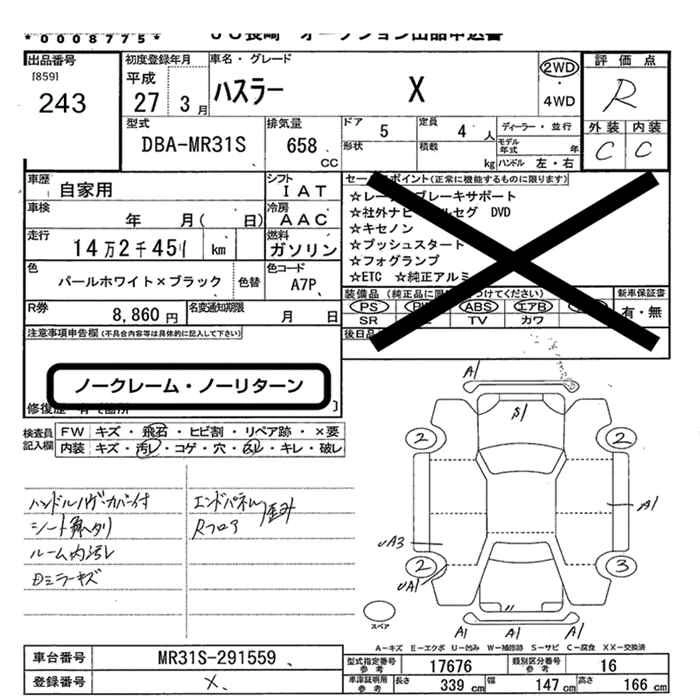 *0008775* JU長崎 オークション出品申込書
出品番号 初度登録年月 車名・グレード 評価点
[859] 平成 2WD
243 27 3月 ハスラー X ・4WD R
型式 排気量 ドア 5 定員 4人 ディーラー・並行 外装 内装
DBA-MR31S 658 CC 形状 積載 kg モデル年式 年 ハンドル 左・右 C C
車歴 自家用 シフト IAT セールスポイント(正常に機能するものに限ります)
車検 年 月( 日) 冷房 AAC
走行 14万2千451 km 燃料 ガソリン
色 パールホワイト×ブラック 色替 色コード A7P
R券 8,860円 名変通知期限 月 日
☆社外ナビ DVD
☆キセノン
☆プッシュスタート
☆フォグランプ
☆ETC ☆純正アルミ
装備品 新車保証書
PS ABS エアB 有・無
SR TV カワ
後日品
注意事項申告欄(不具合内容等は具体的に記入して下さい)
ノークレーム・ノーリターン
修復歴
検査員記入欄 FW キズ・飛石・ヒビ割・リペア跡・×要
内装 キズ・汚レ・コゲ・穴・ ・キレ・破レ
ハンドル カバー付
シート
ルーム内汚レ
Dミラーキズ
エンドパネル
Rフロア
歪
A1
S1
2 2
A1
UA3
2 3
UA1
A1 A1 A1
スペア
A-キズ E-エクボ U-凹み W-補修跡 S-サビ C-腐食 XX-交換済
車台番号 MR31S-291559
登録番号 X
型式指定番号 参考 17676 類別区分番号 参考 16
車庫証明用 参考 長さ 339 cm 幅 147 cm 高さ 166 cm